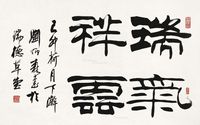 瑞氣
祥雲
己卯荷月下澣
劉炳森書於
德草堂